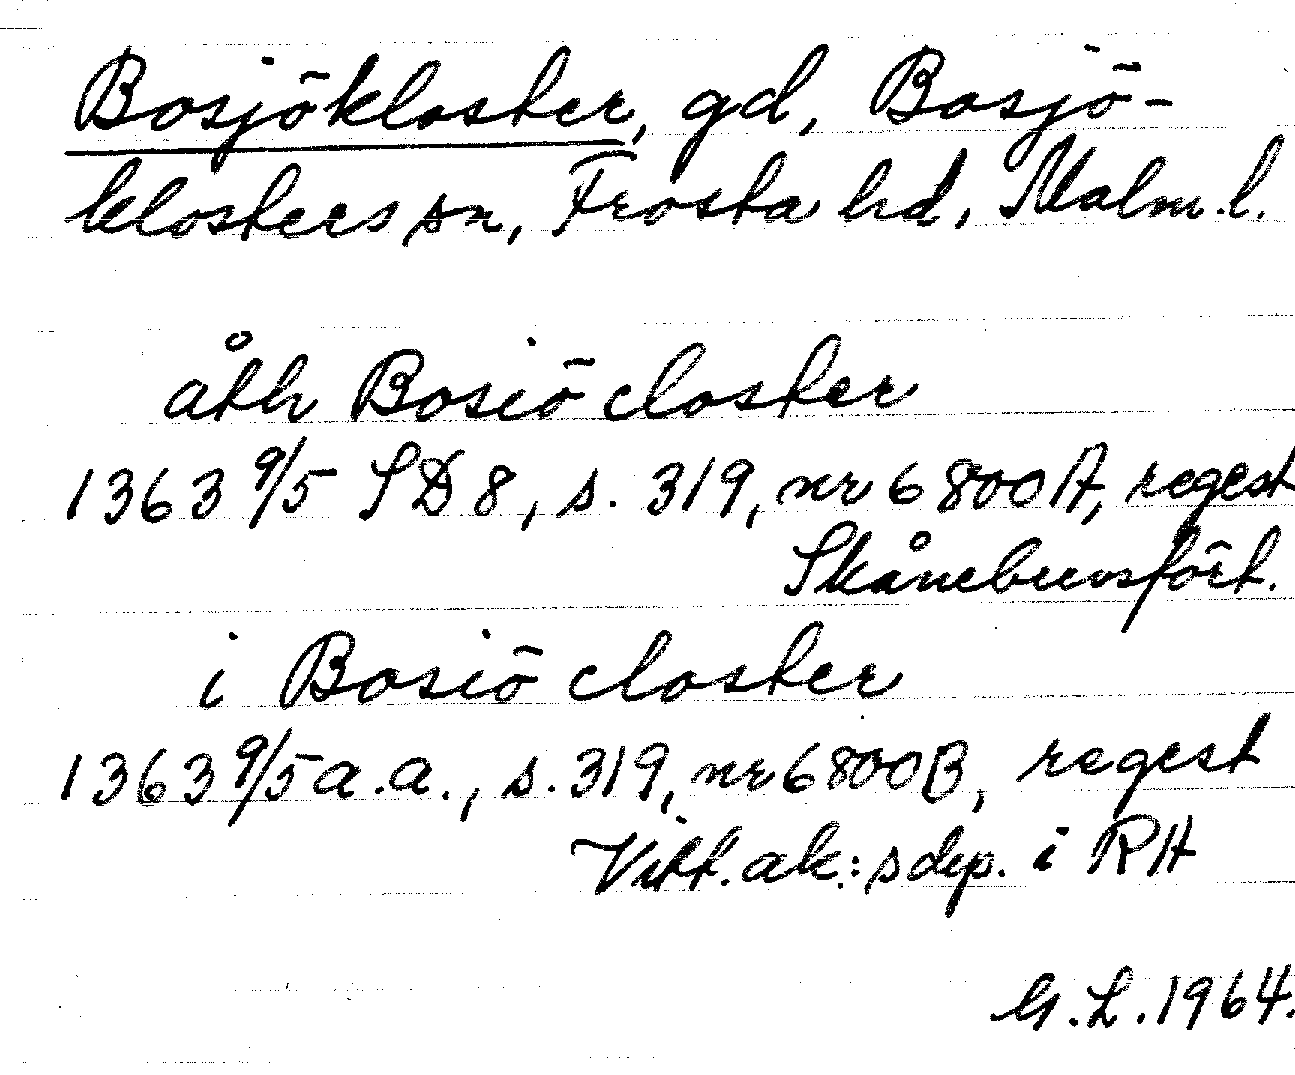 Bosjökloster, gd, Bosjö-
klosters sn, Frosta hd, Malm.l.
åth Bosiö closter
1363 9/5 SD 8, s. 319, nr 6800 A, regest
Skånebrevsfört.
i Bosiö closter
1363 9/5 a.a., s. 319, nr 6800 B, regest
Vitt.ak:s dep. i RA
G.L. 1964.